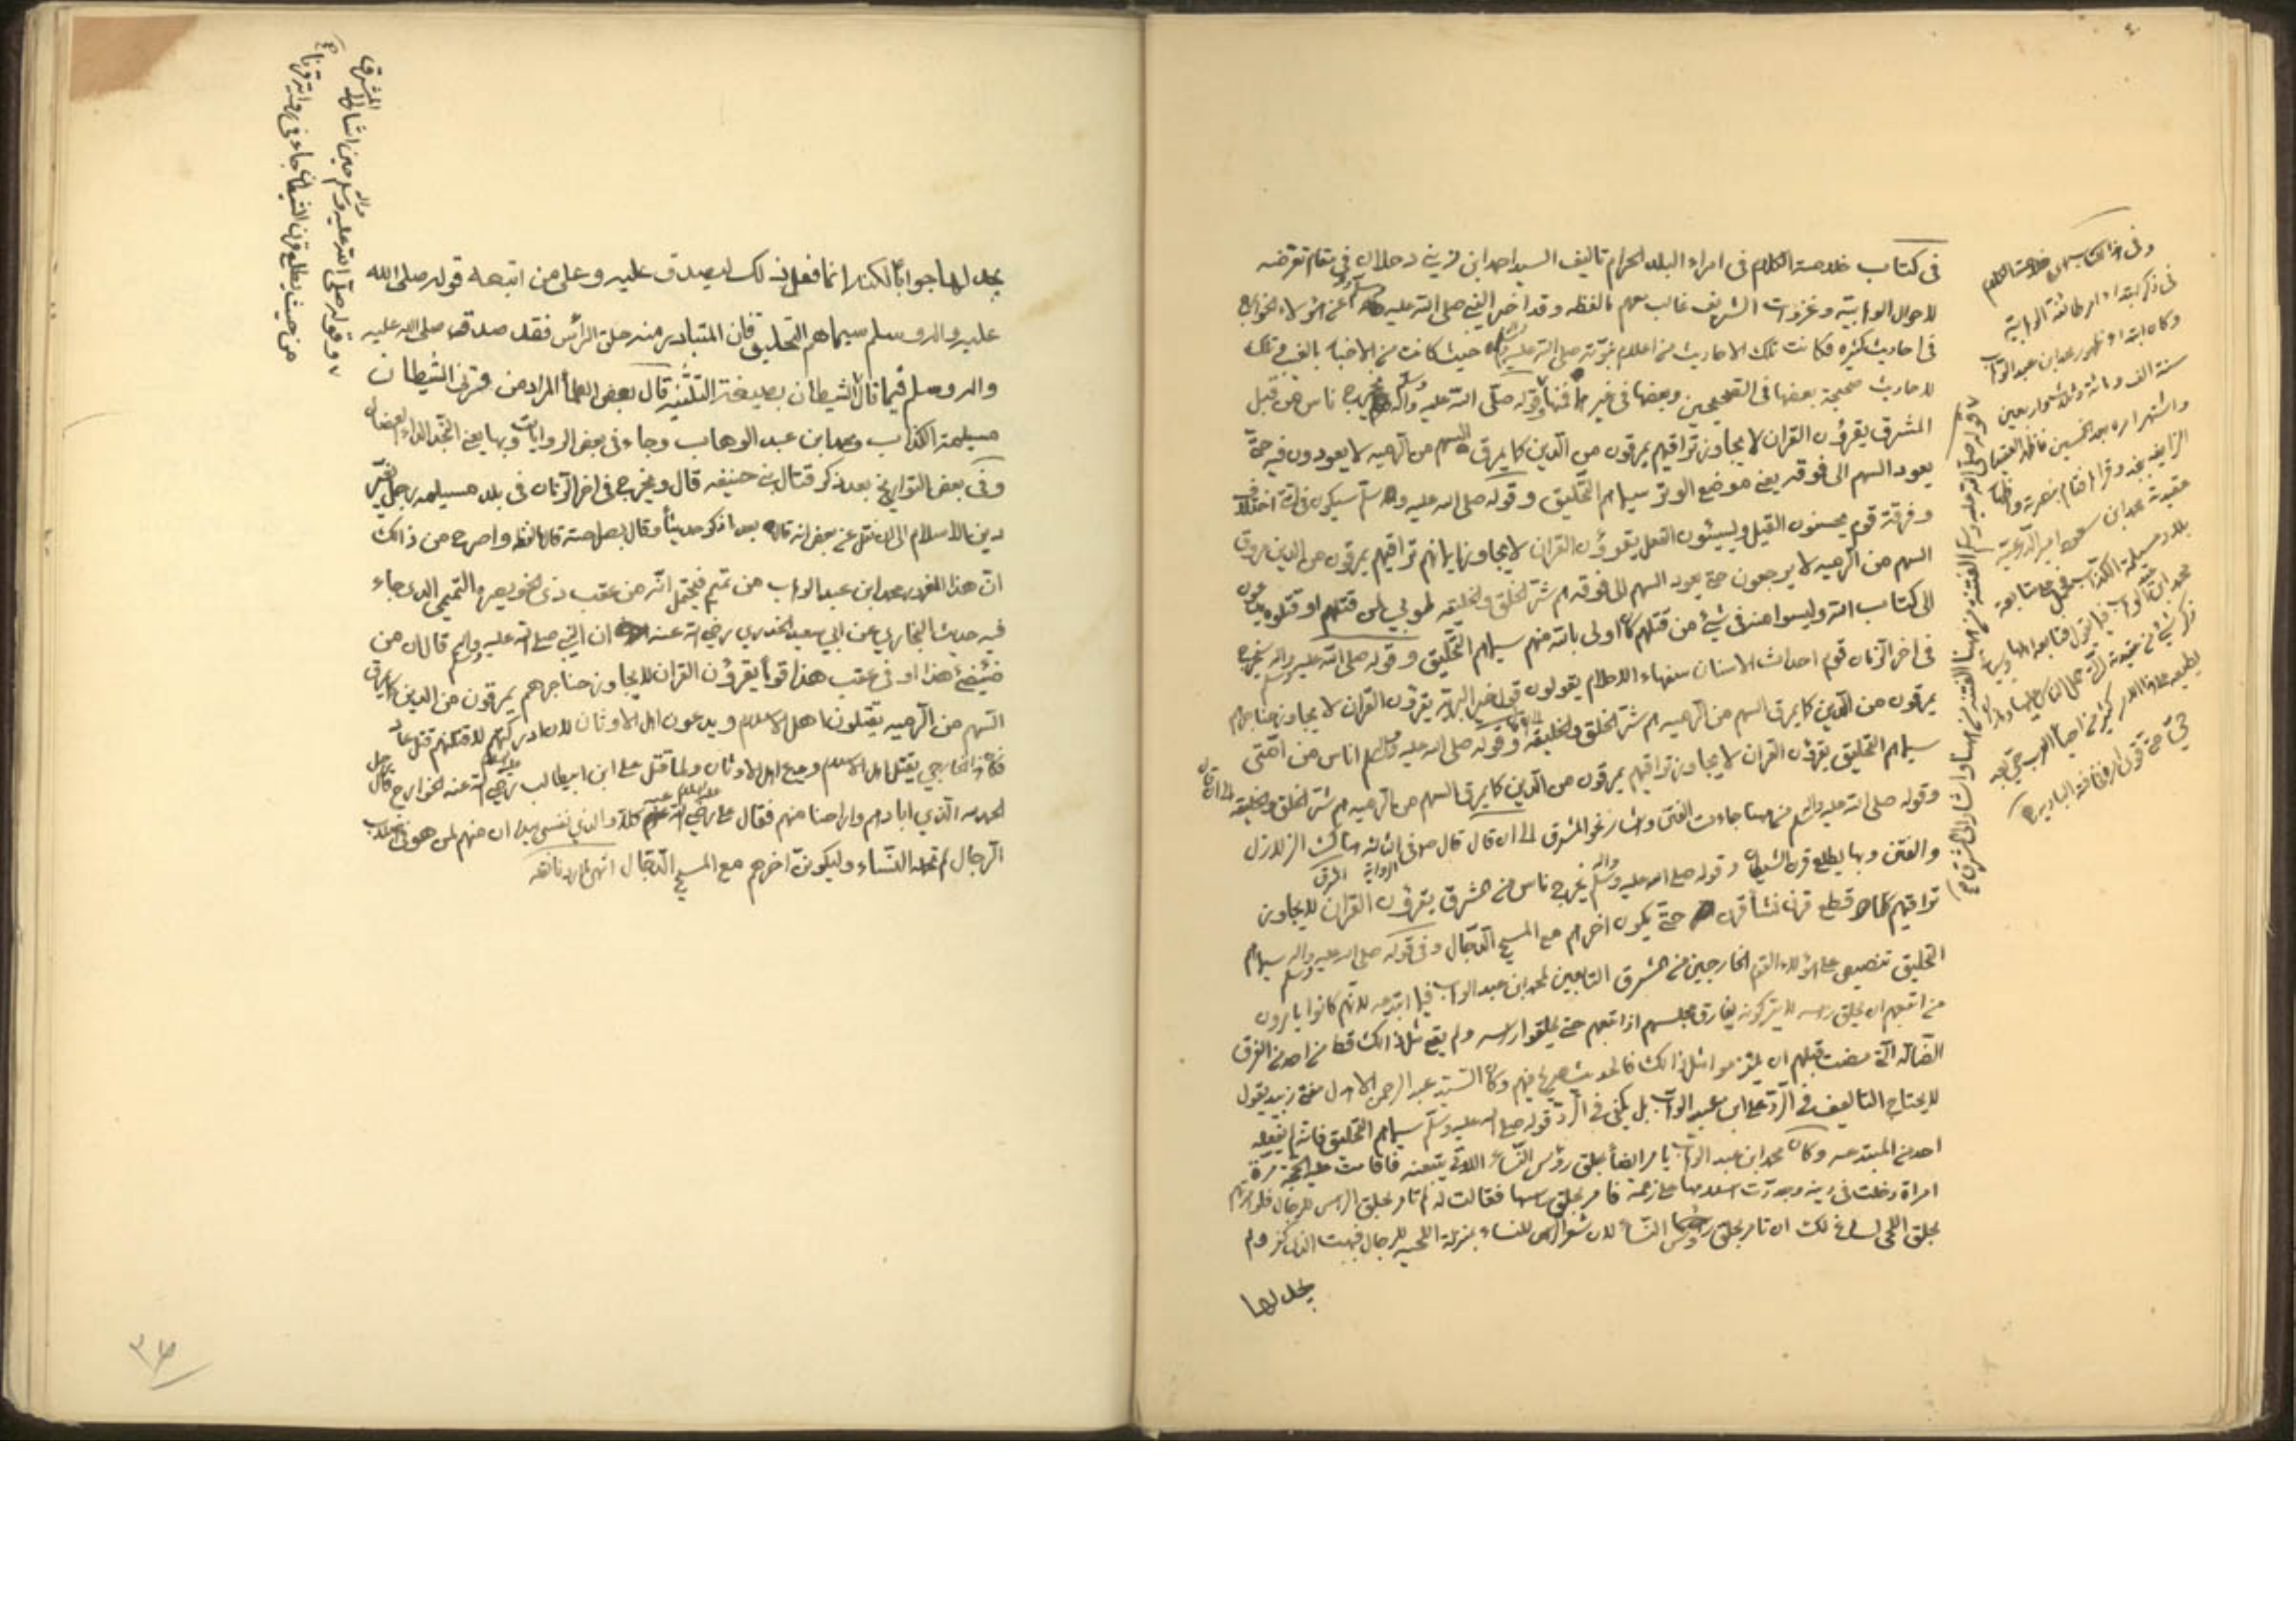 في كتاب خلاصة الكلام في امراء البلد الحرام تاليف السيد احمد ابن زيني دحلان في مقام تعرضه
لاحوال الوهابية وغزوات الشريف غالب معهم بالفظه وقد اخبر النبي صلى الله عليه وآله وسلم عن هؤلاء الخوارج
في احاديث كثيره فكانت تلك الاحاديث من اعلام نبوته صلى الله عليه وآله حيث كانت من الاخبار بالغيب تلك
الاحاديث صحيحة بعضها في الصحيحين وبعضها في غيرها فمنها قوله صلى الله عليه وآله وسلم يخرج ناس من قبل
المشرق يقرؤن القران لا يجاوز تراقيهم يمرقون من الدين كما يمرق السهم من الرميه لا يعودون فيه حتى
يعود السهم الى فوقه يعني موضع الوتر سيماهم التحليق وقوله صلى الله عليه وآله وسلم سيكون في امتي اختلاف
وفرقة قوم يحسنون القيل ويسيئون الفعل يقرؤن القران لا يجاوز ايمانهم تراقيهم يمرقون من الدين مروق
السهم من الرميه لا يرجعون حتى يعود السهم الى فوقه هم شر الخلق والخليقه طوبى لمن قتلهم او قتلوه يدعون
الى كتاب الله وليسوا منه في شئ من قتلهم كان اولى بالله منهم سيماهم التحليق وقوله صلى الله عليه وآله وسلم سيخرج
في اخر الزمان قوم احداث الاسنان سفهاء الاحلام يقولون قول خير البرية يقرؤن القران لا يجاوز حناجرهم
يمرقون من الدين كما يمرق السهم من الرميه هم شر الخلق والخليقه وقوله صلى الله عليه وآله وسلم اناس من امتي
سيماهم التحليق يقرؤن القران لا يجاوز تراقيهم يمرقون من الدين كما يمرق السهم من الرميه هم شر الخلق والخليقه الى ان قال
وقوله صلى الله عليه وآله وسلم من ههنا جاءت الفتن واشار نحو المشرق الى ان قال قال هناك الزلازل
والفتن وبها يطلع قرن الشيطان وقوله صلى الله عليه وآله وسلم يخرج ناس من المشرق يقرؤن القران لا يجاوز
تراقيهم كلما قطع قرن نشأ قرن حتى يكون اخرهم مع المسيح الدجال وفي قوله صلى الله عليه وآله وسلم سيماهم
التحليق تنصيص على هؤلاء القوم الخارجين من المشرق التابعين لمحمد ابن عبد الوهاب فيما ابتدعه لانهم كانوا يامرون
من اتبعهم ان يحلق راسه لا يتركونه يفارق مجلسهم اذا تبعهم حتى يحلقوا راسه ولم يقع مثل ذالك قط من احد من الفرق
الضاله التي مضت قبلهم ان يلتزموا مثل ذالك فالحديث صريح فيهم وكان السيد عبد الرحمن الاهدل مفتي زبيد يقول
لا يحتاج التاليف في الرد على ابن عبد الوهاب بل يكفي في الرد قوله صلى الله عليه وسلم سيماهم التحليق فانه لم يفعله
احد من المبتدعه وكان محمد ابن عبد الوهاب يامر ايضا بحلق رؤس النساء اللاتي يتبعنه فاقامت عليه الحجة مرة
امراة دخلت في دينه وجددت اسلامها على زعمه فامر بحلق راسها فقالت له لم تامر بحلق الراس للرجال فلو امرتهم
بحلق اللحى لساغ لك ان تامر بحلق رؤس النساء لان شعر الراس للنساء بمنزلة اللحيه للرجال فبهت الذي كفر ولم
يجد لها
وفي هذا الكتاب خلاصة الكلام
في ذكر ابتداء امر طائفة الوهابية
وكان ابتداء ظهور محمد ابن عبد الوهاب
سنة الف ومائة وثلاثة واربعين
واشتهر امره بعد الخمسين فاظهر العقيدة
الزايفه بنجد وقراها فقام بنصرته واظهار
عقيدته محمد ابن سعود امير الدرعية
بلاد مسيلمة الكذاب فحمل على متابعة
محمد ابن عبد الوهاب فيما يقول فتابعه اهلها
قوله صلى الله عليه وسلم الفتنه من ههنا الفتنه من ههنا واشار الى المشرق
يجد لها جوابا لكنه انما فعل ذلك ليصدق عليه وعلى من اتبعه قوله صلى الله
عليه واله وسلم سيماهم التحليق فان المتبادر منه حلق الراس فقد صدق صلى الله عليه
واله وسلم فيما قال الشيطان بصيغة التثنيه قال بعض العلماء المراد من قرني الشيطان
مسيلمة الكذاب ومحمد ابن عبد الوهاب وجاء في بعض الروايات وبها يعني النجد الداء العضال
وفي بعض التواريخ بعد ذكر قتال بني حنيفه قال ويخرج في اخر الزمان في بلد مسيلمه رجل يغير
دين الاسلام الى ان نقل عن بعض انه قال بعد ذكر حديثا وقال واصرح من ذالك
ان هذا المغرور محمد ابن عبد الوهاب من تميم فيحتمل انه من عقب ذي الخويصره التميمي الذي جاء
فيه حديث البخاري عن ابي سعيد الخدري رضي الله عنه ان النبي صلى الله عليه واله وسلم قال ان من
ضئضئ هذا او في عقب هذا قوما يقرؤن القران لا يجاوز حناجرهم يمرقون من الدين كما يمرق
السهم من الرميه يقتلون اهل الاسلام ويدعون اهل الاوثان لان ادركتهم لاقتلنهم قتل عاد
فكان هذا الخارجي يقتل اهل الاسلام ويدع اهل الاوثان ولما قتل علي ابن ابيطالب رضي الله عنه الخوارج قال رجل
الحمد لله الذي ابادهم واراحنا منهم فقال علي رضي الله عنه كلا والذي نفسي بيده ان منهم لمن هو في اصلاب
الرجال لم تحمله النساء وليكونن اخرهم مع المسيح الدجال انتهى
وقوله صلى الله عليه واله وسلم حين اشار الى المشرق
من حيث يطلع قرن الشيطان جاء في رواية قرنا